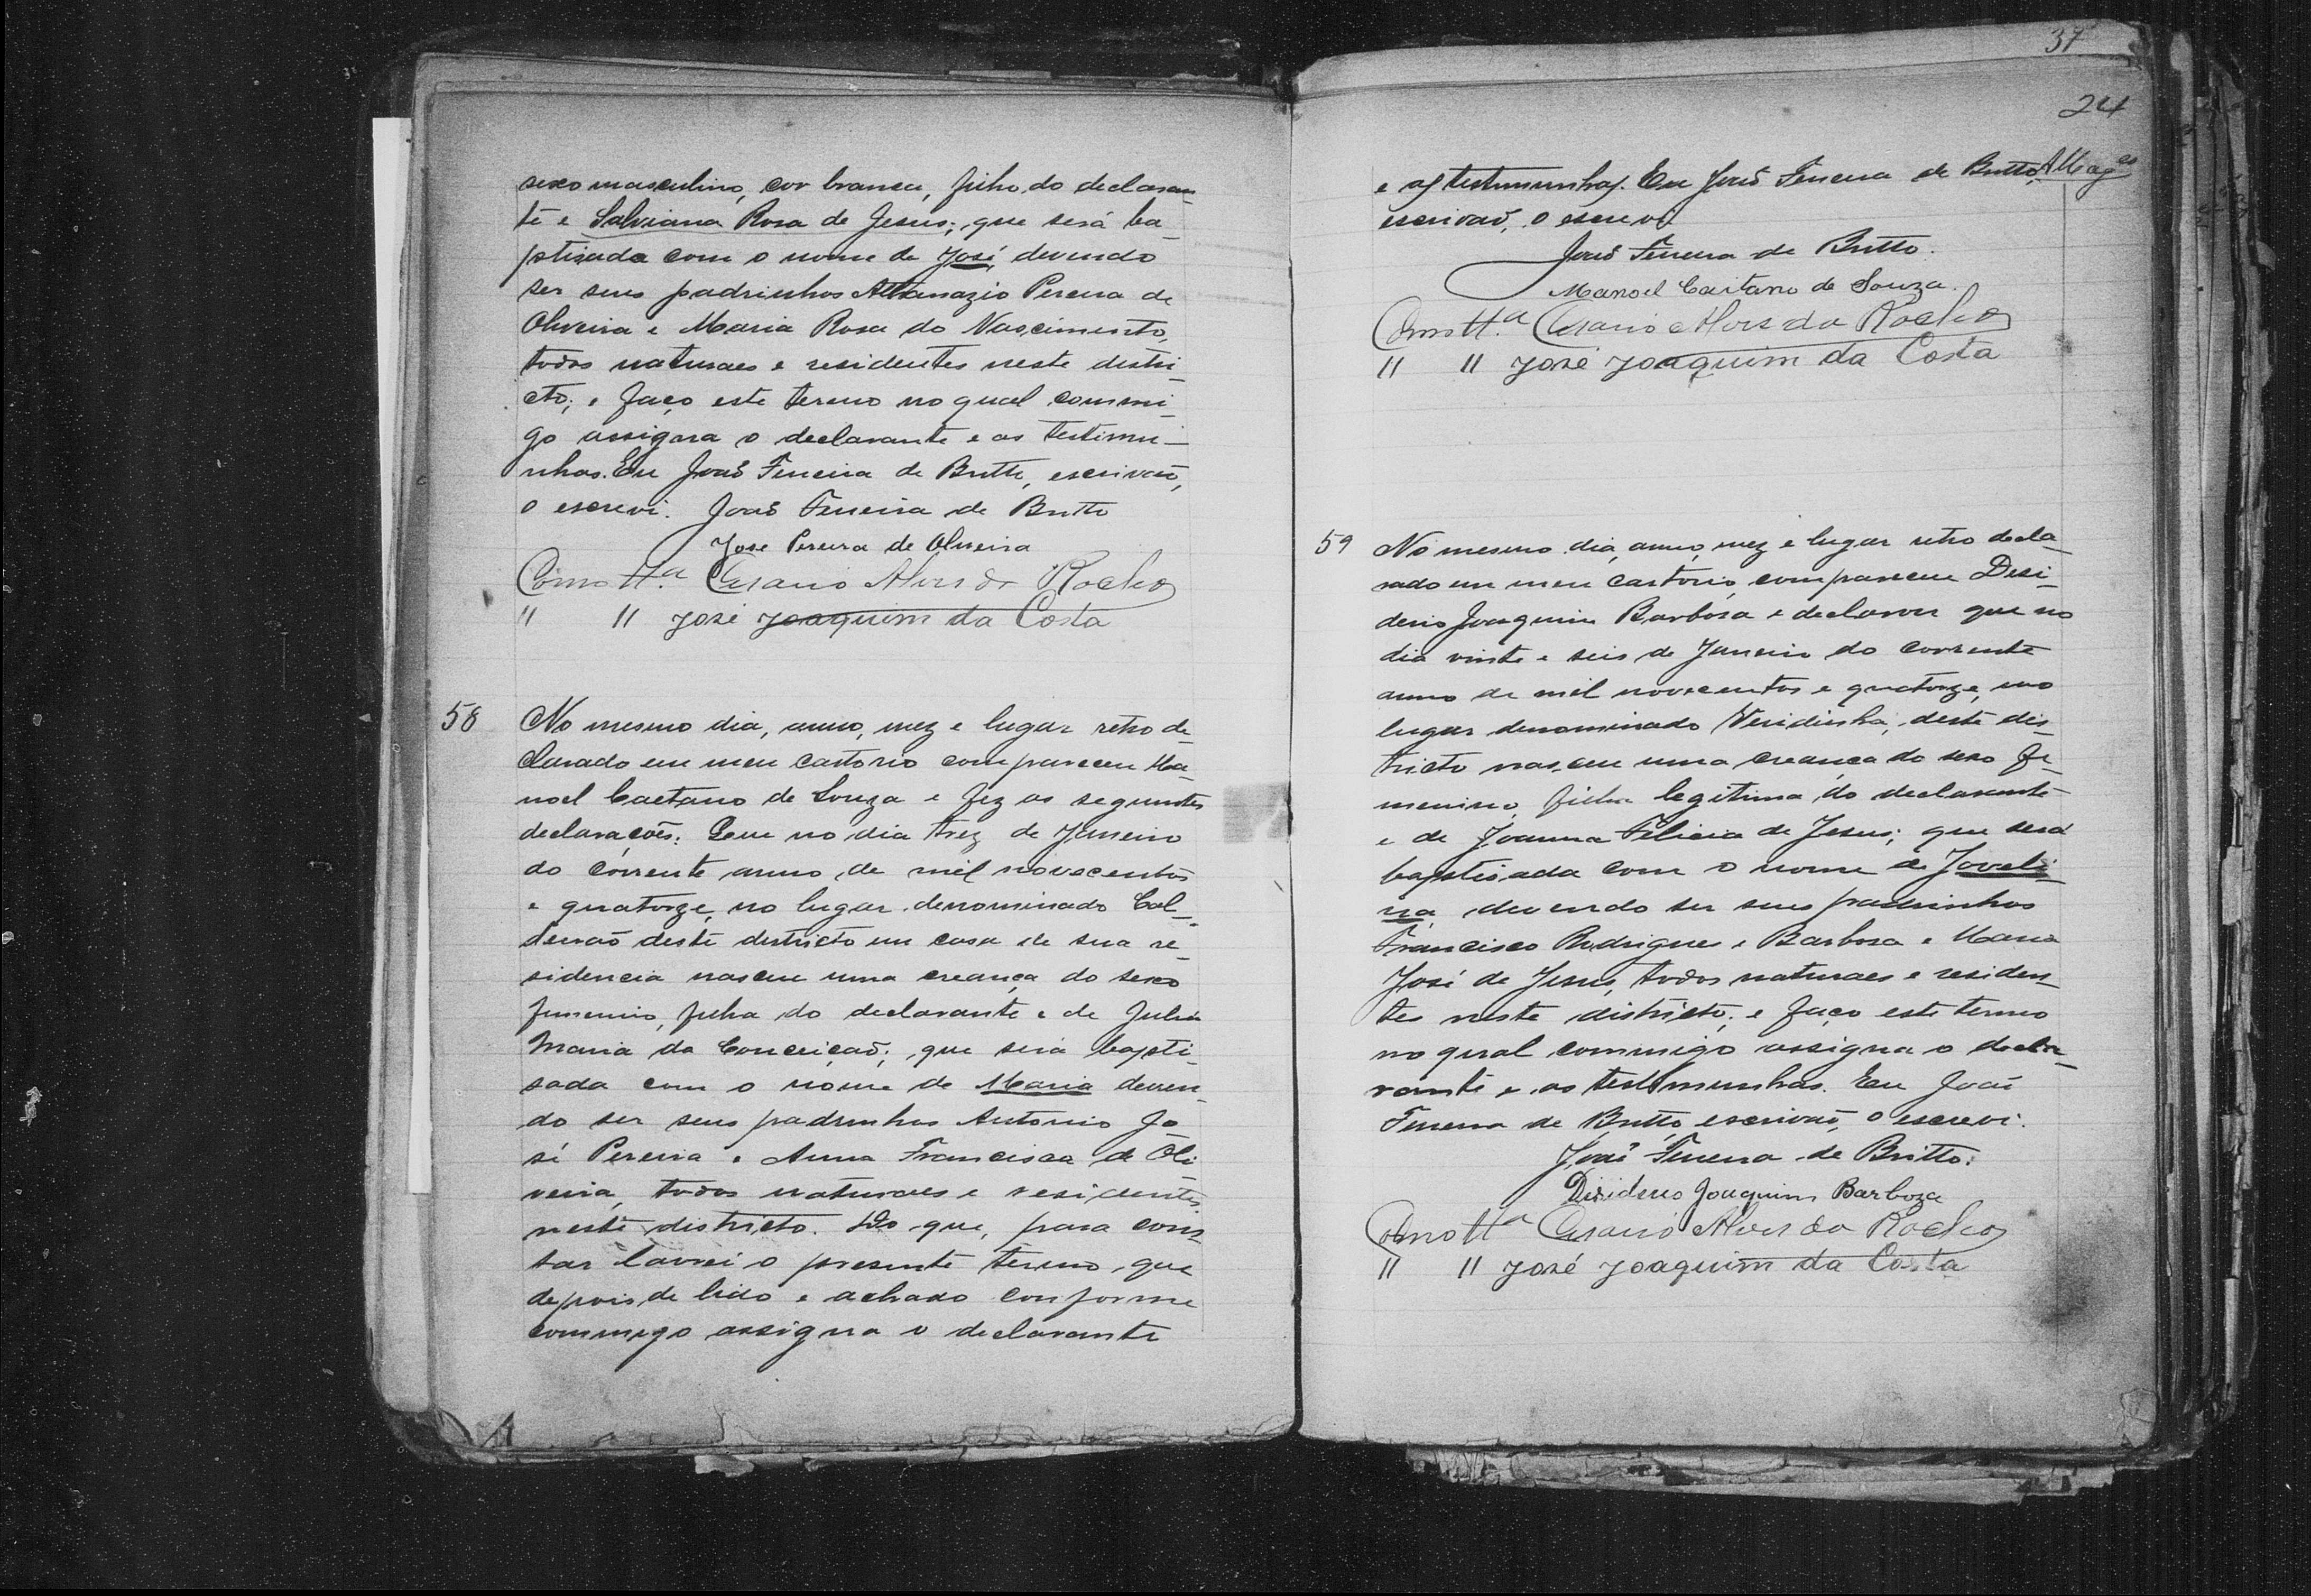 sexo masculino, cor branca, filho do declaran-
te e Salviana Rosa de Jesus; que será ba-
ptisada com o nome de José, devendo
ser seus padrinhos Athanazio Pereira de
Oliveira e Maria Rosa do Nascimento,
todos naturaes e residentes neste distri-
cto; e faço este termo no qual commi-
go assigna o declarante e as testimu-
nhas. Eu João Ferreira de Britto, escrivão,
o escrevi. João Ferreira de Britto
Jose Pereira de Oliveira
Como tta. Cesario Alves da Rocha
" " José Joaquim da Costa
58 No mesmo dia, anno, mez e lugar retro de-
clarado em meu cartorio compareceu Ma-
noel Caetano de Souza e fez as seguintes
declarações: Que no dia trez de Janeiro
do corrente anno de mil novecentos
e quatorze, no lugar denominado Cal-
deirão deste districto em casa de sua re-
sidencia nasceu uma creança do sexo
femenino, filha do declarante e de Julia
Maria da Conceição; que será bapti-
sada com o nome de Maria deven-
do ser seus padrinhos Antonio Jo-
sé Pereira e Anna Francisca de Oli-
veira, todos naturaes e residentes
neste districto. Do que, para cons-
tar lavrei o presente termo, que
depois de lido e achado conforme
commigo assigna o declarante
37
24
e as testimunhas. Eu João Ferreira de Britto,
escrivão, o escrevi
João Ferreira de Britto.
Manoel Caitano de Souza.
Como tta. Cesario Alves da Rocha
" " José Joaquim da Costa
59 No mesmo dia, anno, mez e lugar retro decla-
rado em meu cartorio, compareceu Desi-
derio Joaquim Barbosa e declarou que no
dia vinte e seis de Janeiro do corrente
anno de mil novecentos e quatorze, no
lugar denominado Veridinha, deste dis-
tricto nasceu uma creança do sexo fe-
menino, filha legitima do declarante
e de Joanna Felicia de Jesus; que será
baptisada com o nome de Joveli-
na devendo ser seus padrinhos
Francisco Rodrigues Barbosa e Maria
José de Jesus, todos naturaes e residen-
tes neste districto; e faço este termo
no qual commigo assigna o decla-
rante e as testimunhas. Eu João
Ferreira de Britto, escrivão, o escrevi.
João Ferreira de Britto.
Disiderio Joaquim Barboza
Como tta Cesario Alves da Rocha
" " José Joaquim da Costa